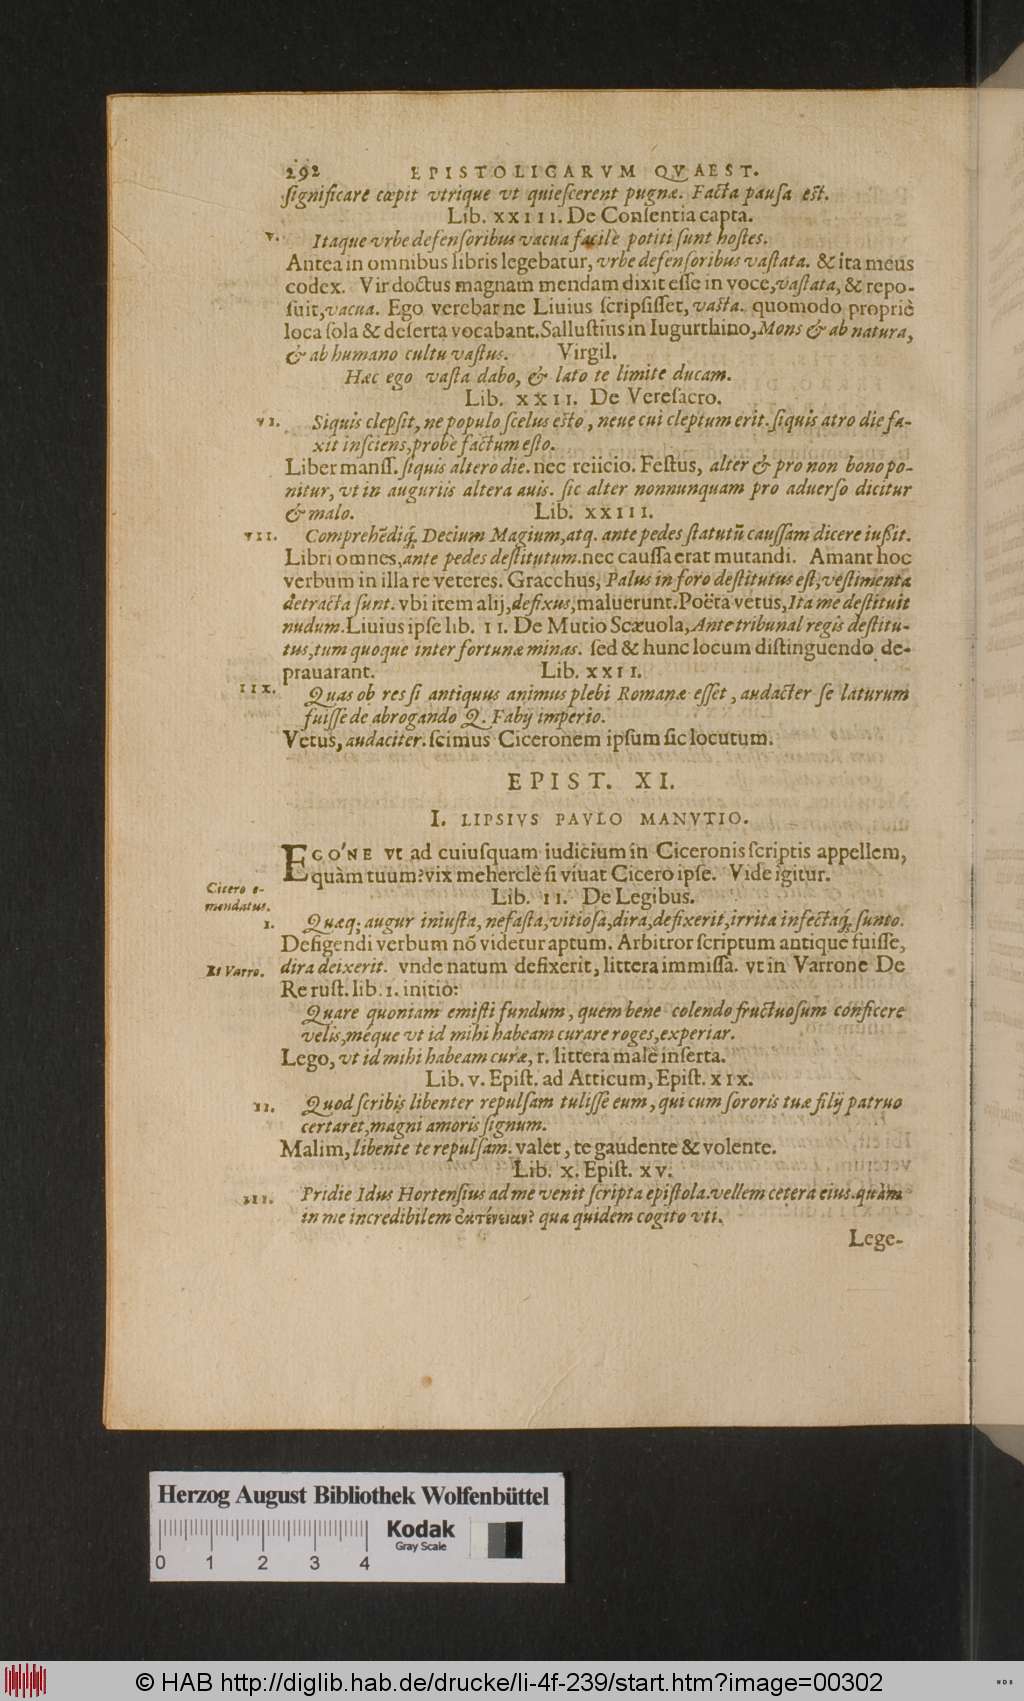 292 EPISTOLICARVM QVAEST.
ſignificare cœpit vtrique vt quieſcerent pugnæ. Facta pauſa eſt.
Lib. XXIII. De Conſentia capta.
V. Itaque vrbe defenſoribus vacua facilè potiti ſunt hoſtes.
Antea in omnibus libris legebatur, vrbe defenſoribus vaſtata. & ita meus
codex. Vir doctus magnam mendam dixit eſſe in voce, vaſtata, & repo-
ſuit, vacua. Ego verebar ne Liuius ſcripſiſſet, vaſta. quomodo propriè
loca ſola & deſerta vocabant. Salluſtius in Iugurthino, Mons & ab natura,
& ab humano cultu vaſtus. Virgil.
Hæc ego vaſta dabo, & lato te limite ducam.
Lib. XXII. De Vere ſacro.
VI. Siquis clepſit, ne populo ſcelus eſto, neue cui cleptum erit. ſiquis atro die fa-
xit inſciens, probè factum eſto.
Liber manſſ. ſiquis altero die. nec reiicio. Feſtus, alter & pro non bono po-
nitur, vt in auguriis altera auis. ſic alter nonnunquam pro aduerſo dicitur
& malo. Lib. XXIII.
VII. Comprehēdiq́; Decium Magium, atq. ante pedes ſtatutū cauſſam dicere iußit.
Libri omnes, ante pedes deſtitutum. nec cauſſa erat mutandi. Amant hoc
verbum in illa re veteres. Gracchus, Palus in foro deſtitutus eſt, veſtimenta
detracta ſunt. vbi item alij, defixus, maluerunt. Poëta vetus, Ita me deſtituit
nudum. Liuius ipſe lib. II. De Mutio Scæuola, Ante tribunal regis deſtitu-
tus, tum quoque inter fortunæ minas. ſed & hunc locum diſtinguendo de-
prauarant. Lib. XXII.
IIX. Quas ob res ſi antiquus animus plebi Romanæ eſſet, audacter ſe laturum
fuiſſe de abrogando Q. Fabij imperio.
Vetus, audaciter. ſcimus Ciceronem ipſum ſic locutum.
EPIST. XI.
I. LIPSIVS PAVLO MANVTIO.
EGO'NE vt ad cuiuſquam iudicium in Ciceronis ſcriptis appellem,
quàm tuum? vix meherclè ſi viuat Cicero ipſe. Vide igitur.
Cicero e-
mendatus.
Lib. II. De Legibus.
I. Quæq; augur iniuſta, nefaſta, vitioſa, dira, defixerit, irrita infectaq́; ſunto.
Defigendi verbum nō videtur aptum. Arbitror ſcriptum antique fuiſſe,
Et Varro. dira deixerit. vnde natum defixerit, littera immiſſa. vt in Varrone De
Re ruſt. lib. I. initio:
Quare quoniam emiſti fundum, quem bene colendo fructuoſum conficere
velis, méque vt id mihi habeam curare roges, experiar.
Lego, vt id mihi habeam curæ, r. littera malè inſerta.
Lib. V. Epiſt. ad Atticum, Epiſt. XIX.
II. Quod ſcribis libenter repulſam tuliſſe eum, qui cum ſororis tuæ filij patruo
certaret, magni amoris ſignum.
Malim, libente te repulſam. valet, te gaudente & volente.
Lib. X. Epiſt. XV.
III. Pridie Idus Hortenſius ad me venit ſcripta epiſtola. vellem cetera eius. quàm
in me incredibilem ἐκτένειαν? qua quidem cogito vti.
Lege-
Herzog August Bibliothek Wolfenbüttel
Kodak
Gray Scale
0 1 2 3 4
© HAB http://diglib.hab.de/drucke/li-4f-239/start.htm?image=00302